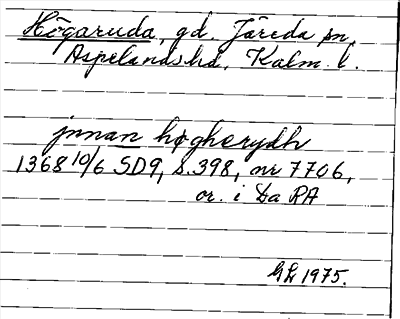 Högaruda, gd. Järeda sn,
Aspelands hd, Kalm. l.
jnnan høgherydh
1368 10/6 SD9, s. 398, nr 7706,
or. i La RA
GL 1975.